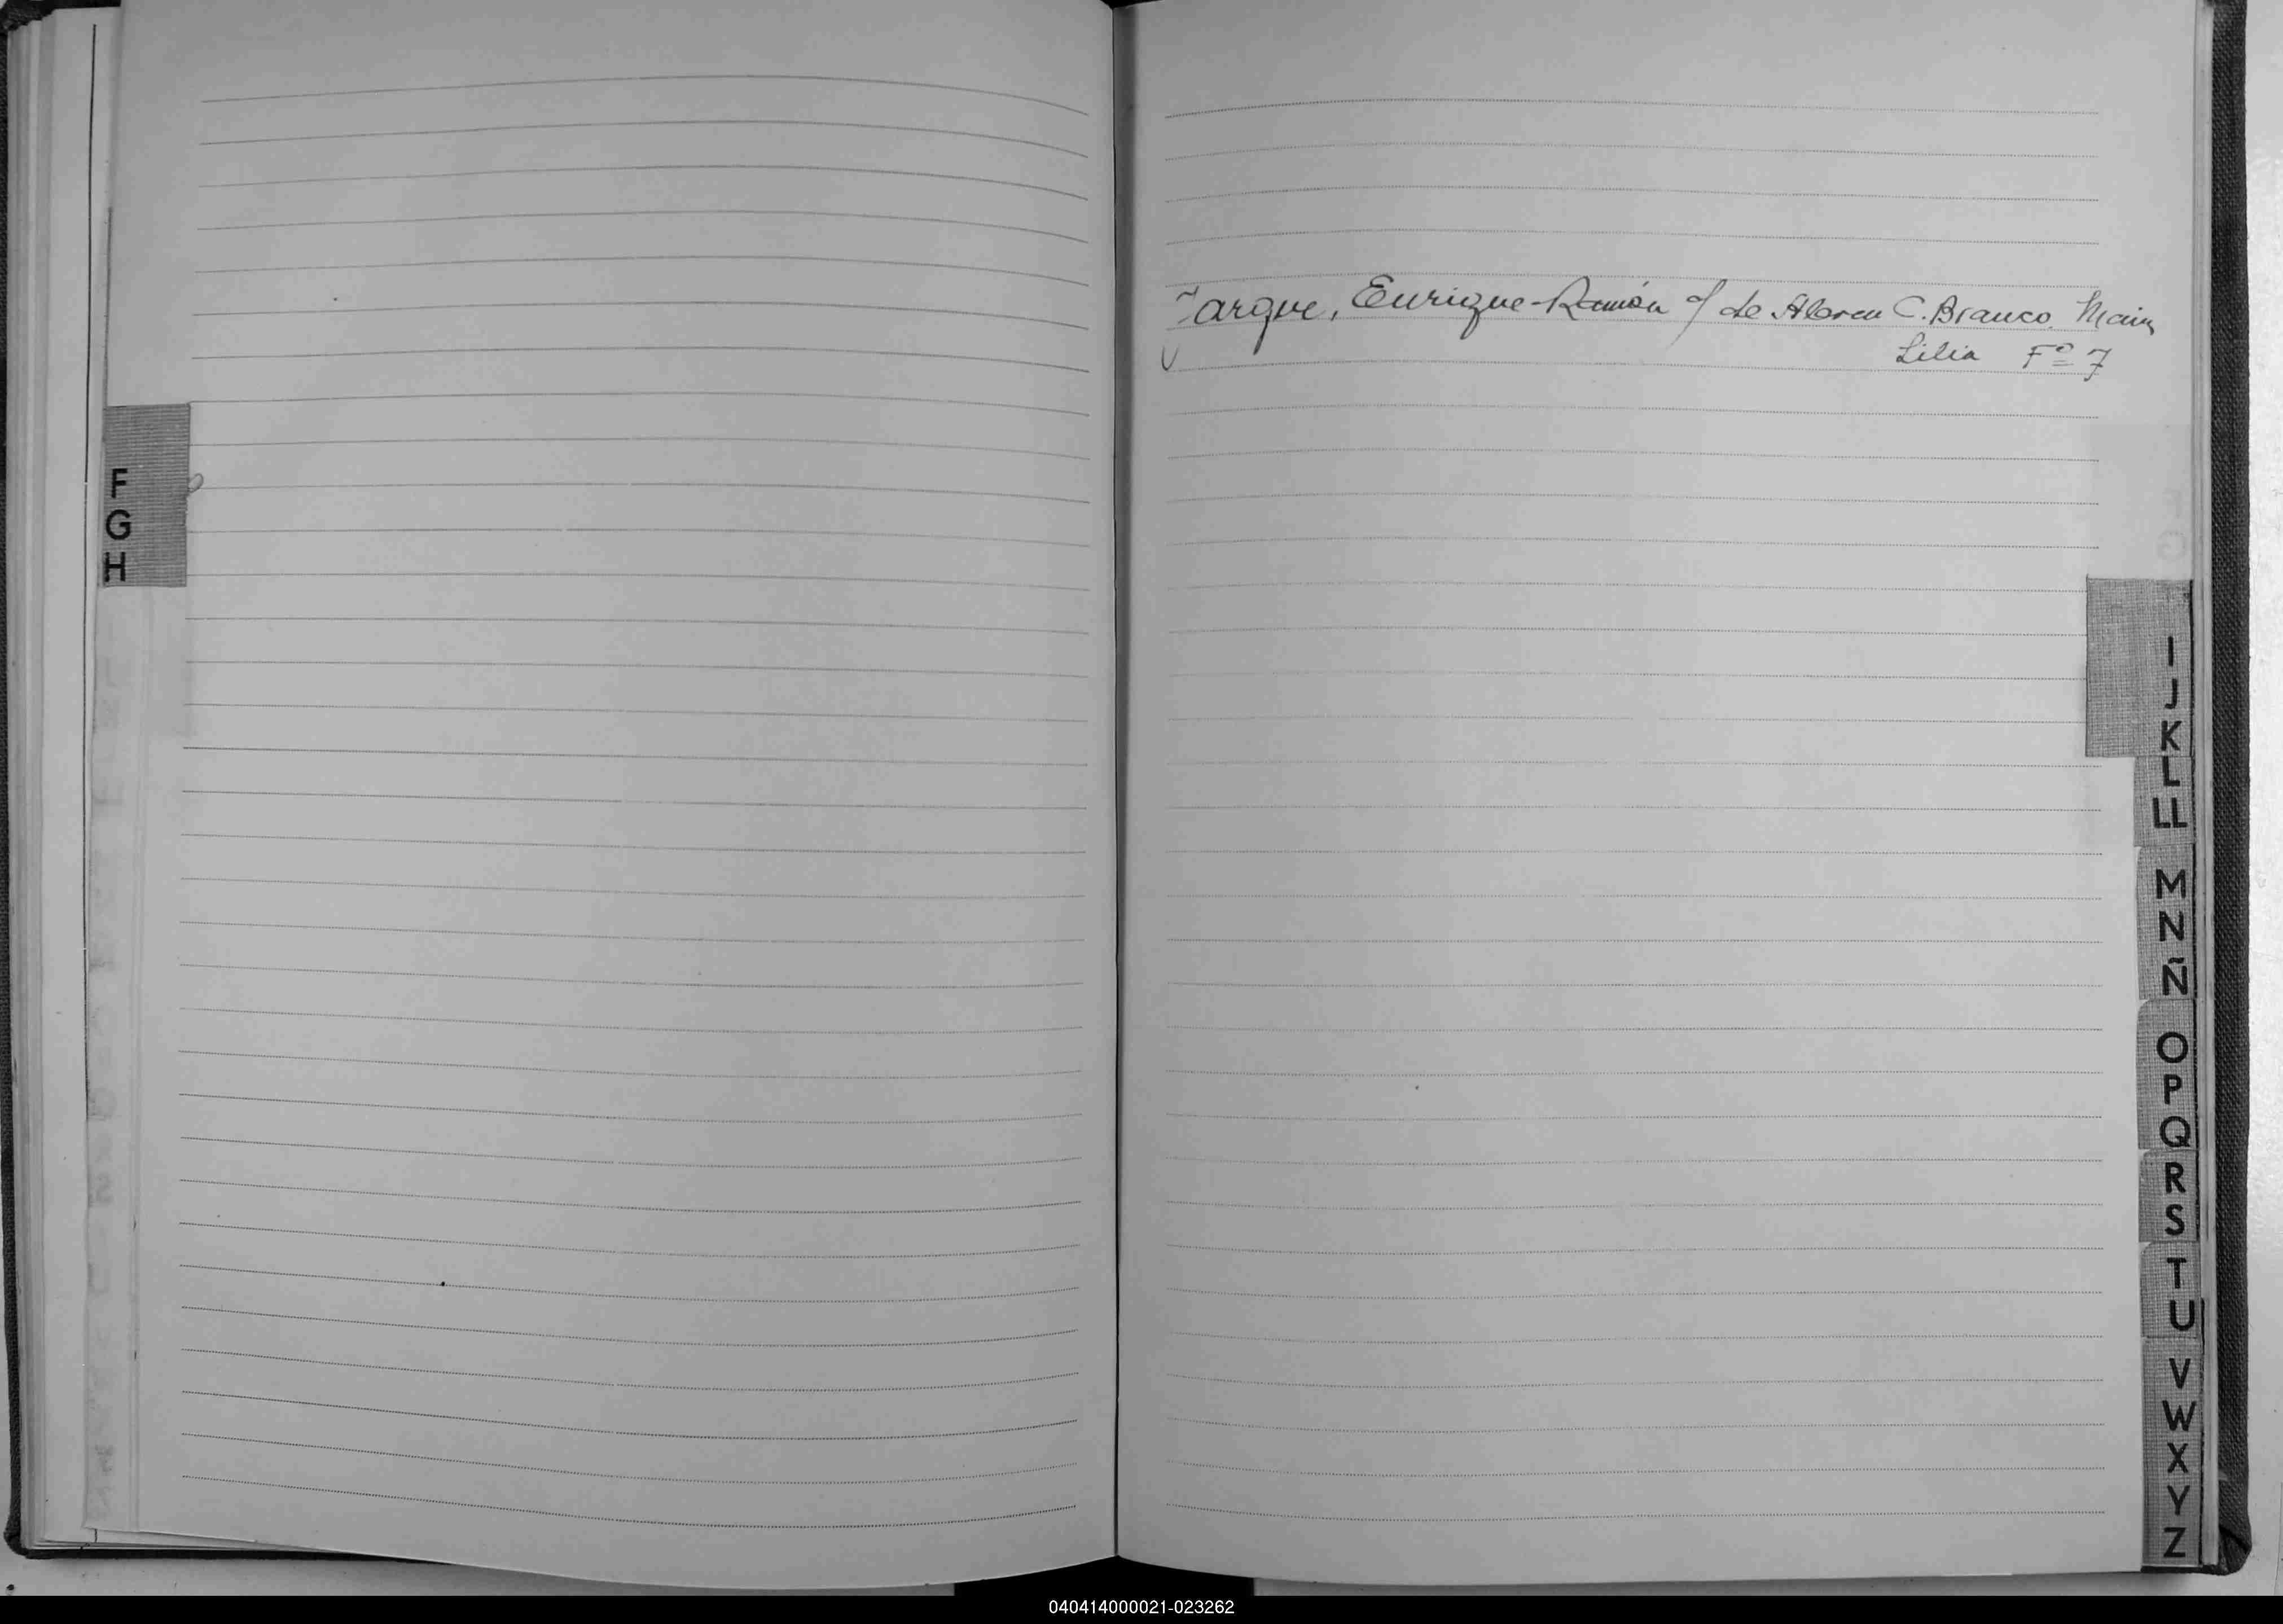 Jarque, Enrique-Ramón c/ de Abreu C. Branco, Maria
Lilia Fº 7
F
G
H
I
J
K
L
LL
M
N
Ñ
O
P
Q
R
S
T
U
V
W
X
Y
Z
040414000021-023262